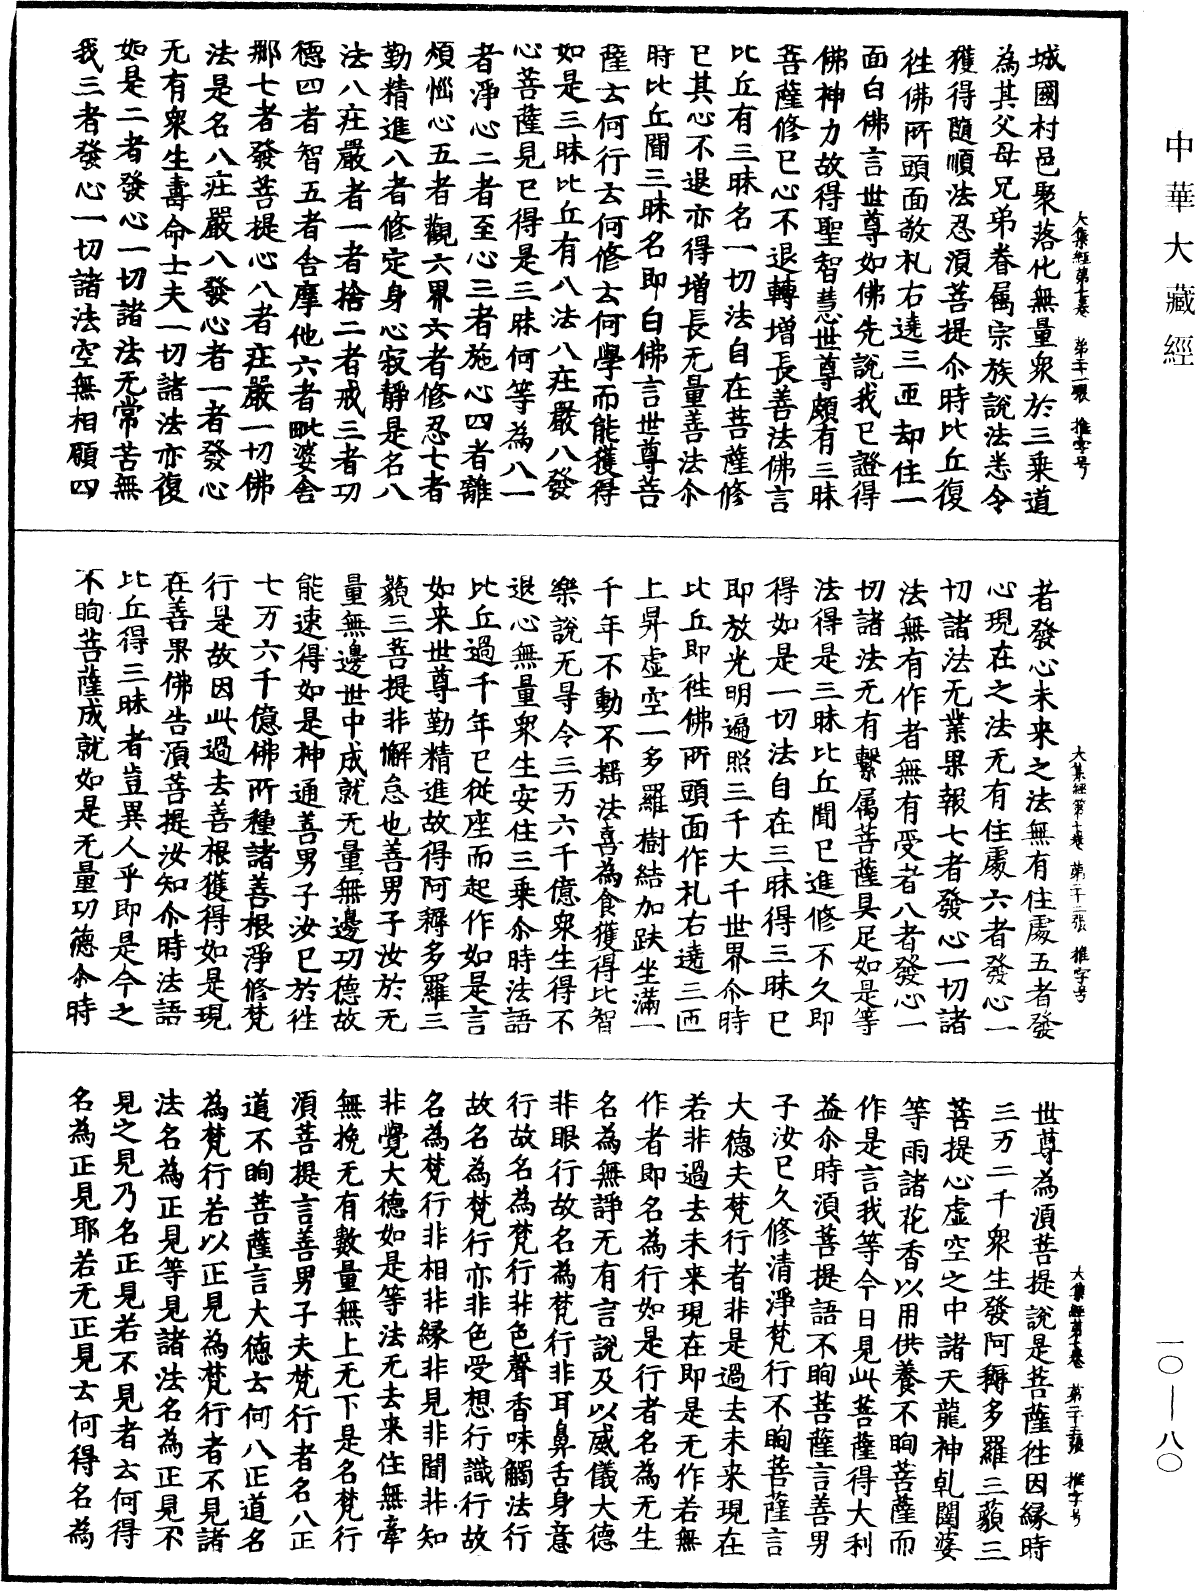 中華大藏經
大集經第十卷 第二十一張 推字号
城國村邑聚落化無量衆於三乘道
為其父母兄弟眷屬宗族說法悉令
獲得隨順法忍湏菩提尒時比丘復
徃佛所頭面敬礼右遶三迊却住一
面白佛言世尊如佛先說我已證得
佛神力故得聖智慧世尊頗有三昧
菩薩修已心不退轉增長善法佛言
比丘有三昧名一切法自在菩薩修
已其心不退亦得增長无量善法尒
時比丘聞三昧名即白佛言世尊菩
薩云何行云何修云何學而能獲得
如是三昧比丘有八法八莊嚴八發
心菩薩見已得是三昧何等為八一
者淨心二者至心三者施心四者離
煩惱心五者觀六界六者修忍七者
勤精進八者修定身心寂靜是名八
法八莊嚴者一者捨二者戒三者功
德四者智五者舍摩他六者毗婆舍
那七者發菩提心八者莊嚴一切佛
法是名八莊嚴八發心者一者發心
无有衆生壽命士夫一切諸法亦復
如是二者發心一切諸法无常苦無
我三者發心一切諸法空無相願四
大集經第十卷 第二十二張 推字号
者發心未来之法無有住處五者發
心現在之法无有住處六者發心一
切諸法无業果報七者發心一切諸
法無有作者無有受者八者發心一
切諸法无有繫屬菩薩具足如是等
法得是三昧比丘聞已進修不久即
得如是一切法自在三昧得三昧已
即放光明遍照三千大千世界尒時
比丘即徃佛所頭面作礼右遶三迊
上昇虛空一多羅樹結加趺坐滿一
千年不動不揺法喜為食獲得比智
樂說无㝵令三万六千億衆生得不
退心無量衆生安住三乘尒時法語
比丘過千年已從座而起作如是言
如来世尊勤精進故得阿耨多羅三
藐三菩提非懈怠也善男子汝於无
量無邊世中成就无量無邊功德故
能速得如是神通善男子汝已於徃
七万六千億佛所種諸善根淨修梵
行是故因此過去善根獲得如是現
在善果佛告湏菩提汝知尒時法語
比丘得三昧者豈異人乎即是今之
不眴菩薩成就如是无量功德尒時
大集經第十卷 第二十三張 推字号
世尊為湏菩提說是菩薩徃因緣時
三万二千衆生發阿耨多羅三藐三
菩提心虛空之中諸天龍神乹闥婆
等雨諸花香以用供養不眴菩薩而
作是言我等今日見此菩薩得大利
益尒時湏菩提語不眴菩薩言善男
子汝已久修清淨梵行不眴菩薩言
大德夫梵行者非是過去未来現在
若非過去未来現在即是无作若無
作者即名為行如是行者名為无生
名為無諍无有言說及以威儀大德
非眼行故名為梵行非耳鼻舌身意
行故名為梵行非色聲香味觸法行
故名為梵行亦非色受想行識行故
名為梵行非相非緣非見非聞非知
非覺大德如是等法无去来住無牽
無挽无有數量無上无下是名梵行
湏菩提言善男子夫梵行者名八正
道不眴菩薩言大德云何八正道名
為梵行若以正見為梵行者不見諸
法名為正見等見諸法名為正見不
見之見乃名正見若不見者云何得
名為正見耶若无正見云何得名為
一〇—八〇